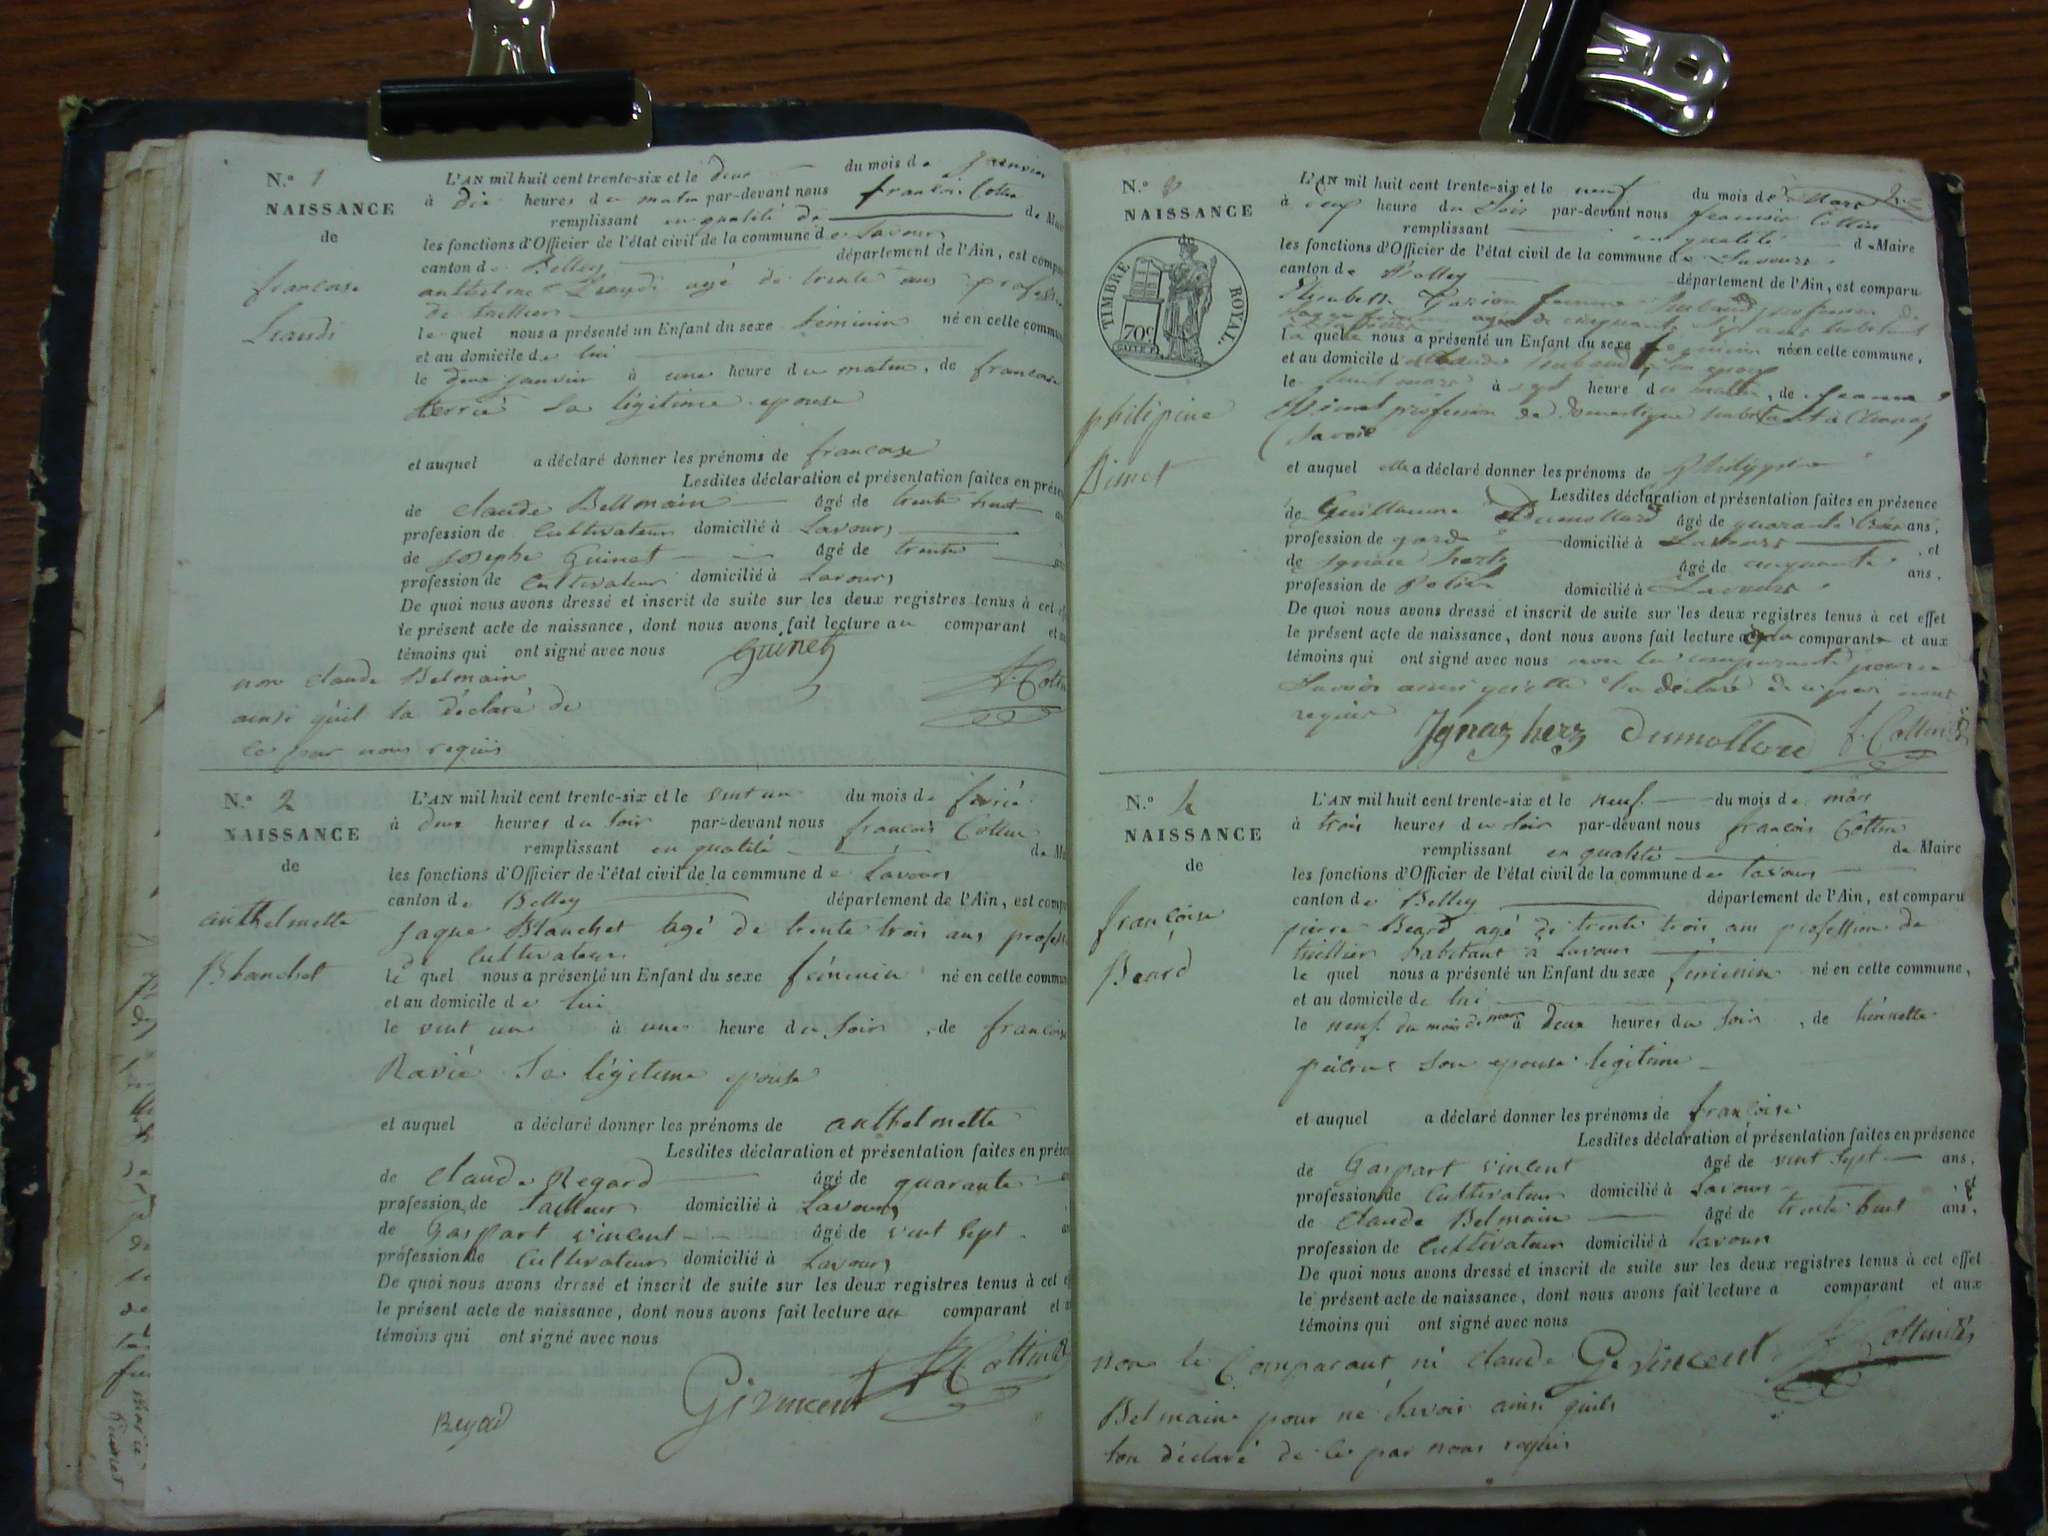 N.o 1
NAISSANCE
de
françoise
L'AN mil huit cent trente-six et le deux du mois de Janvier
à dix heures du matin par-devant nous françois Cottin
remplissant en qualité de de Mai
les fonctions d'Officier de l'état civil de la commune de Lavours
canton de Belley département de l'Ain, est comp
anthelme agé de trente ans profession
de
le quel nous a présenté un Enfant du sexe féminin né en celle commu
et au domicile de lui
le deux janvier à une heure du matin, de françoise
sa légitime epouse
et auquel a déclaré donner les prénoms de françoise
Lesdites déclaration et présentation faites en prése
de Claude Bellmain âgé de trente huit
profession de Cultivateur domicilié à Lavours
de Joseph Guinet âgé de trente
profession de Cultivateur domicilié à Lavours
De quoi nous avons dressé et inscrit de suite sur les deux registres tenus à cet ef
le présent acte de naissance, dont nous avons fait lecture au comparant et
témoins qui ont signé avec nous
non Claude Belmain
ainsi qu'il la déclaré de
ce par nous requis
Guinet
f. Cottin
N.o 2
NAISSANCE
de
anthelmette
Blanchet
L'AN mil huit cent trente-six et le vint un du mois de fevrié
à deux heures du soir par-devant nous françois Cottin
remplissant en qualité de Ma
les fonctions d'Officier de l'état civil de la commune de Lavours
canton de Belley département de l'Ain, est comp
jaque Blanchet agé de trente trois ans profess
de Cultivateur
le quel nous a présenté un Enfant du sexe féminin né en celle commu
et au domicile de lui
le vint un à une heure du soir, de françoise
Ravié sa légitime epouse
et auquel a déclaré donner les prénoms de anthelmette
Lesdites déclaration et présentation faites en prése
de Claude Regard âgé de quarante
profession de Tailleur domicilié à Lavours
de Gaspart vincent âgé de vint sept
profession de Cultivateur domicilié à Lavours
De quoi nous avons dressé et inscrit de suite sur les deux registres tenus à cet e
le présent acte de naissance, dont nous avons fait lecture au comparant et
témoins qui ont signé avec nous
Regard
G vincent
f. Cottin
N.o 3
NAISSANCE
TIMBRE ROYAL.
70c
philipine
L'AN mil huit cent trente-six et le neuf du mois de Mars
à heure du Soir par-devant nous francois Cottin
remplissant en qualité de Maire
les fonctions d'Officier de l'état civil de la commune de Lavours
canton de Belley département de l'Ain, est comparu
Elisabeth femme profession de
sage femme agée de cinquante ans habitant
La quelle nous a présenté un Enfant du sexe feminin né en celle commune,
et au domicile d
le mars à sept heure du matin, de Jeanne
profession de domestique habitant à
Savoie
et auquel elle a déclaré donner les prénoms de Philippine
Lesdites déclaration et présentation faites en présence
de Guillaume Dumollard âgé de quarante trois ans,
profession de garde domicilié à Lavours, et
de Ignace herz âgé de cinquante ans.
profession de domicilié à Lavours
De quoi nous avons dressé et inscrit de suite sur les deux registres tenus à cet effet
le présent acte de naissance, dont nous avons fait lecture a la comparante et aux
témoins qui ont signé avec nous non la comparante pour ne
Savoir ainsi qu'elle l'a déclaré de ce par nous
requise
Ignaz herz Dumollard f. Cottin
N.o 4
NAISSANCE
de
françoise
Béard
L'AN mil huit cent trente-six et le neuf du mois de mars
à trois heures du Soir par-devant nous françois Cottin
remplissant en qualité de Maire
les fonctions d'Officier de l'état civil de la commune de Lavours
canton de Belley département de l'Ain, est comparu
pierre Béard agé de trente trois ans profession de
habitant à Lavours
le quel nous a présenté un Enfant du sexe feminin né en celle commune,
et au domicile de lui
le neuf du mois de mars à deux heures du Soir, de
son epouse legitime
et auquel a déclaré donner les prénoms de françoise
Lesdites déclaration et présentation faites en présence
de Gaspart vincent âgé de vint sept ans,
profession de Cultivateur domicilié à Lavours, et
de Claude Belmain âgé de trente huit ans,
profession de Cultivateur domicilié à Lavours
De quoi nous avons dressé et inscrit de suite sur les deux registres tenus à cet effet
le présent acte de naissance, dont nous avons fait lecture a comparant et aux
témoins qui ont signé avec nous
non le Comparant ni Claude
Belmain pour ne Savoir ainsi quils
lon déclaré de ce par nous requis
G. vincent
f. Cottin